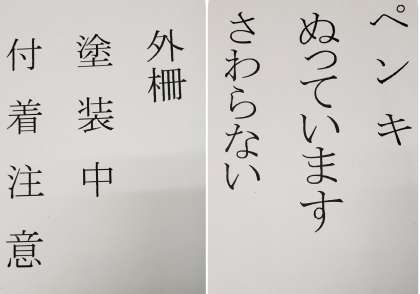 外柵
塗装中
付着注意
ペンキ
ぬっています
さわらない